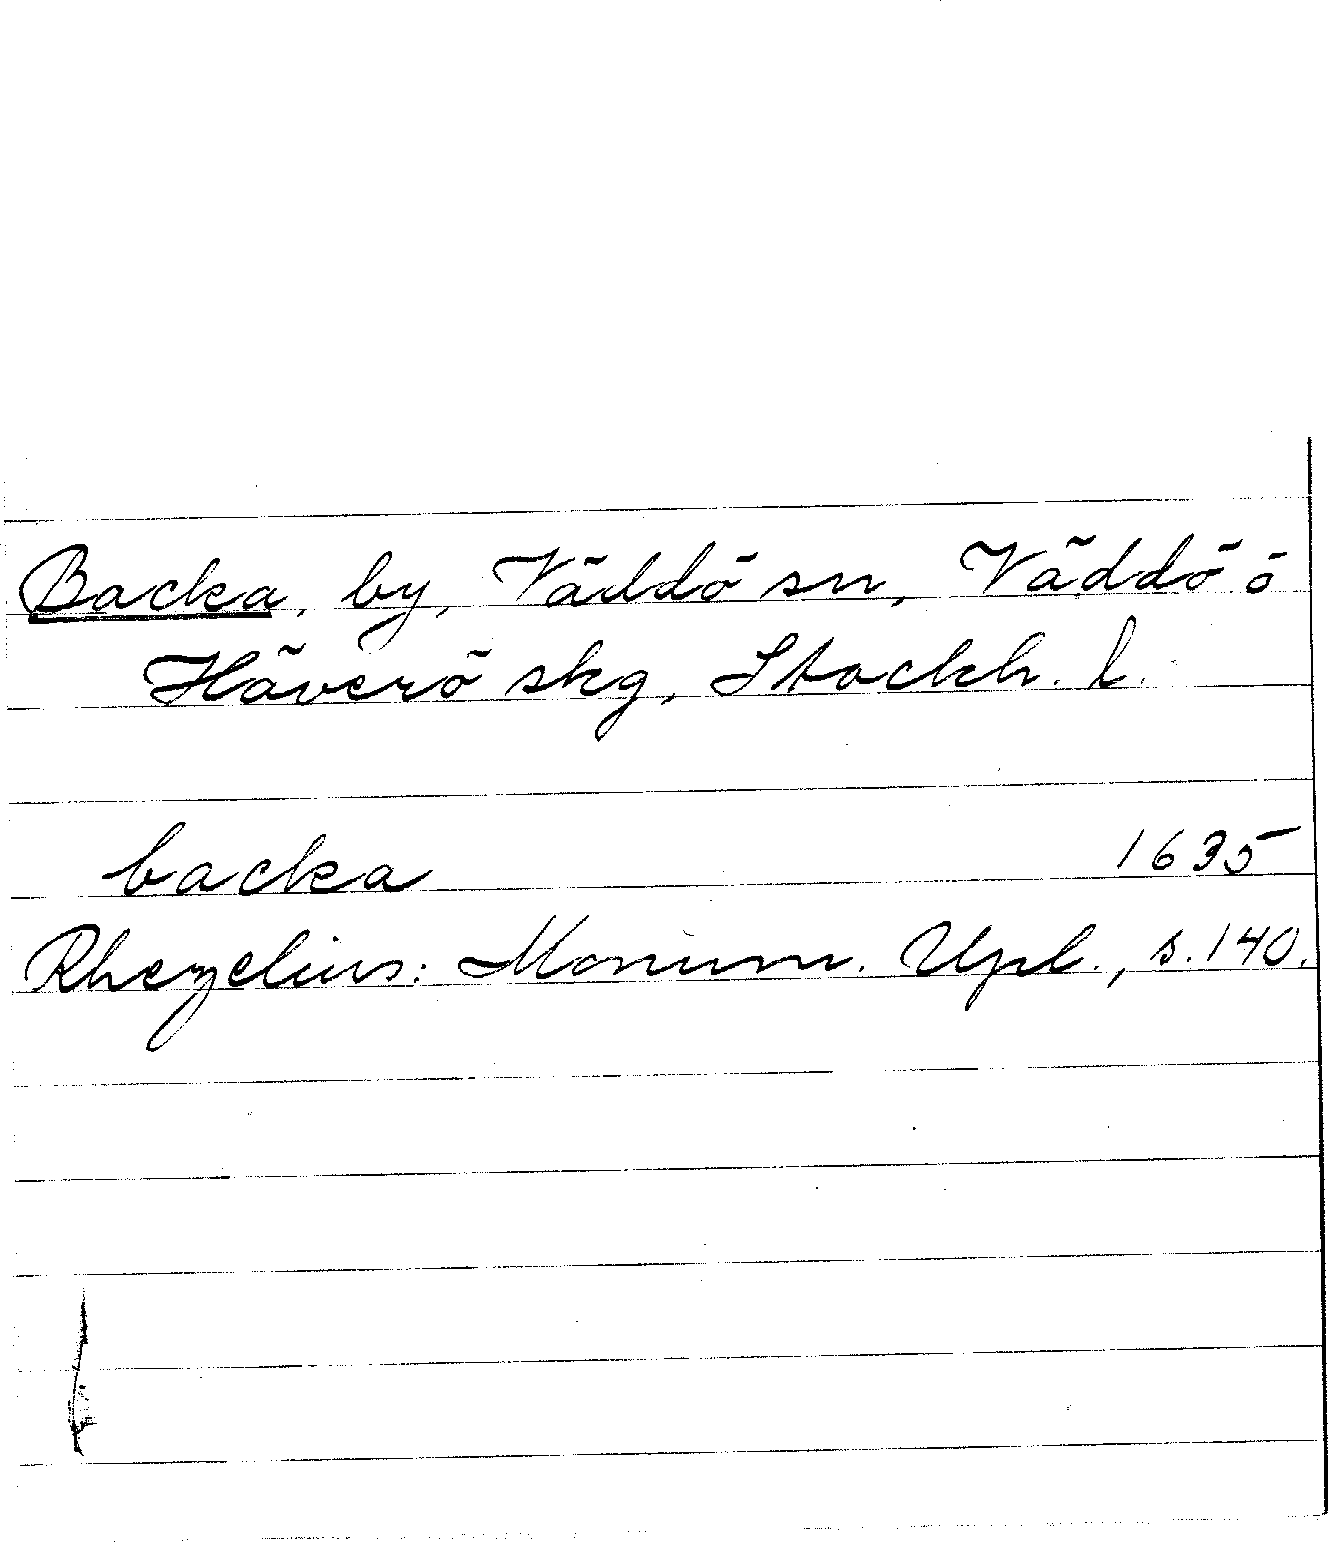 Backa, by, Väddö sn, Väddö o
Häverö skg, Stockh. l.
backa 1635
Rhezelius: Monum. Upl., s. 140.